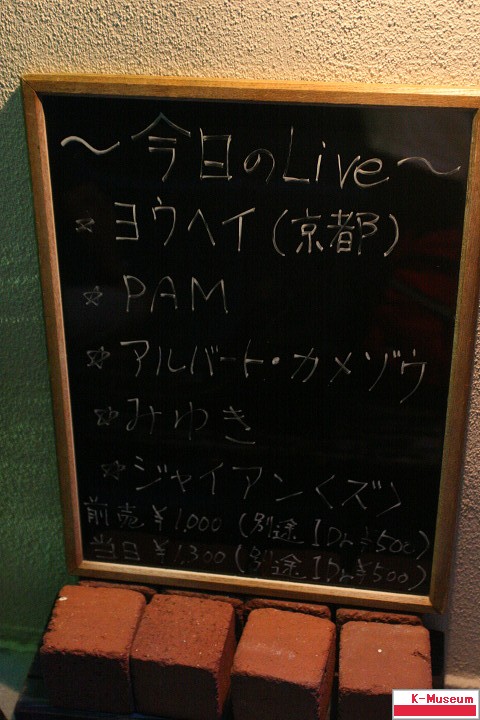 ～今日のLive～
☆ヨウヘイ(京都)
☆PAM
☆アルバート・カメゾウ
☆みゆき
☆ジャイアン<ズ>
前売 ¥1.000 (別途 1Dr¥500)
当日 ¥1.300 (別途 1Dr¥500)
K-Museum